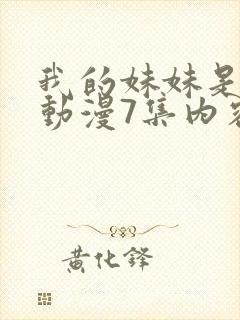 我的妹妹是
動漫7集內容
黄化鋒